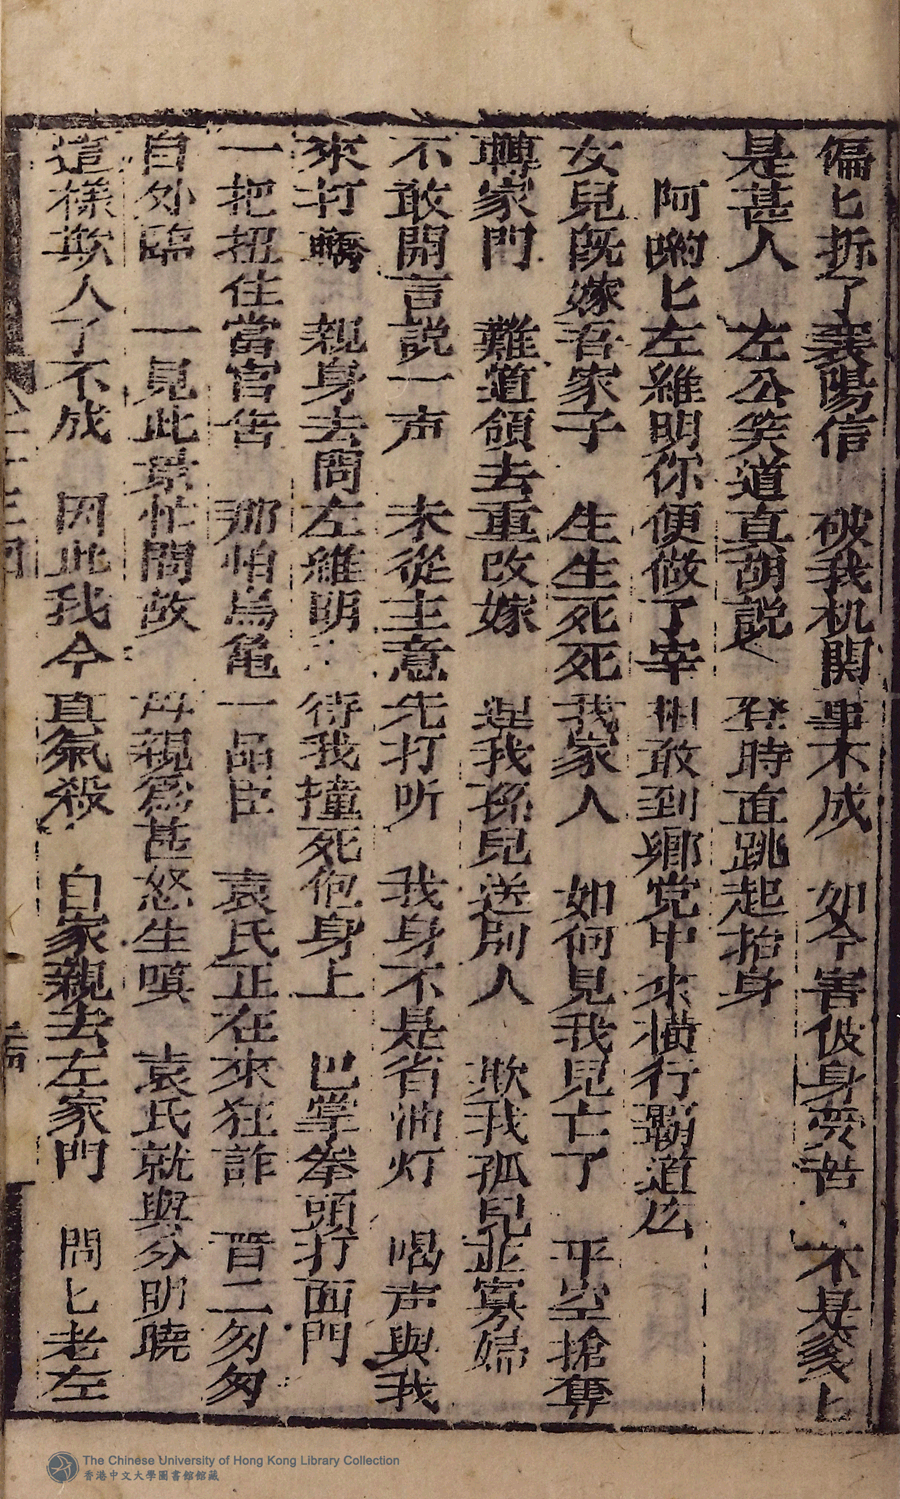 偏匕拆了襄陽信　破我机関事不成　如今害伋身受苦　不是爹匕
是甚人　左公笑道真胡説　登時直跳起抬身
阿喲匕左維明你便做了宰相敢到鄉党中來橫行覇道么
女兒既嫁吾家子　生生死死我家人　如何見我兒亡了　平空搶奪
轉家門　難道領去重改嫁　逞我孫兒送別人　欺我孤兒並寡婦
不敢開言説一声　未從主意先打听　我身不是省油灯　喝声與我
來打轎　親身去問左維明　待我撞死伊身上　巴掌拳頭打面門
一把扭住當官告　那怕烏亀一品臣　袁氏正在來狂詐　晋二匆匆
自外臨　一見此景忙問故　母親為甚怒生嗔　袁氏就與分明曉
這樣欺人了不成　因此我今真氣殺　自家親去左家門　問匕老左
二十三回
The Chinese University of Hong Kong Library Collection
香港中文大學圖書館館藏